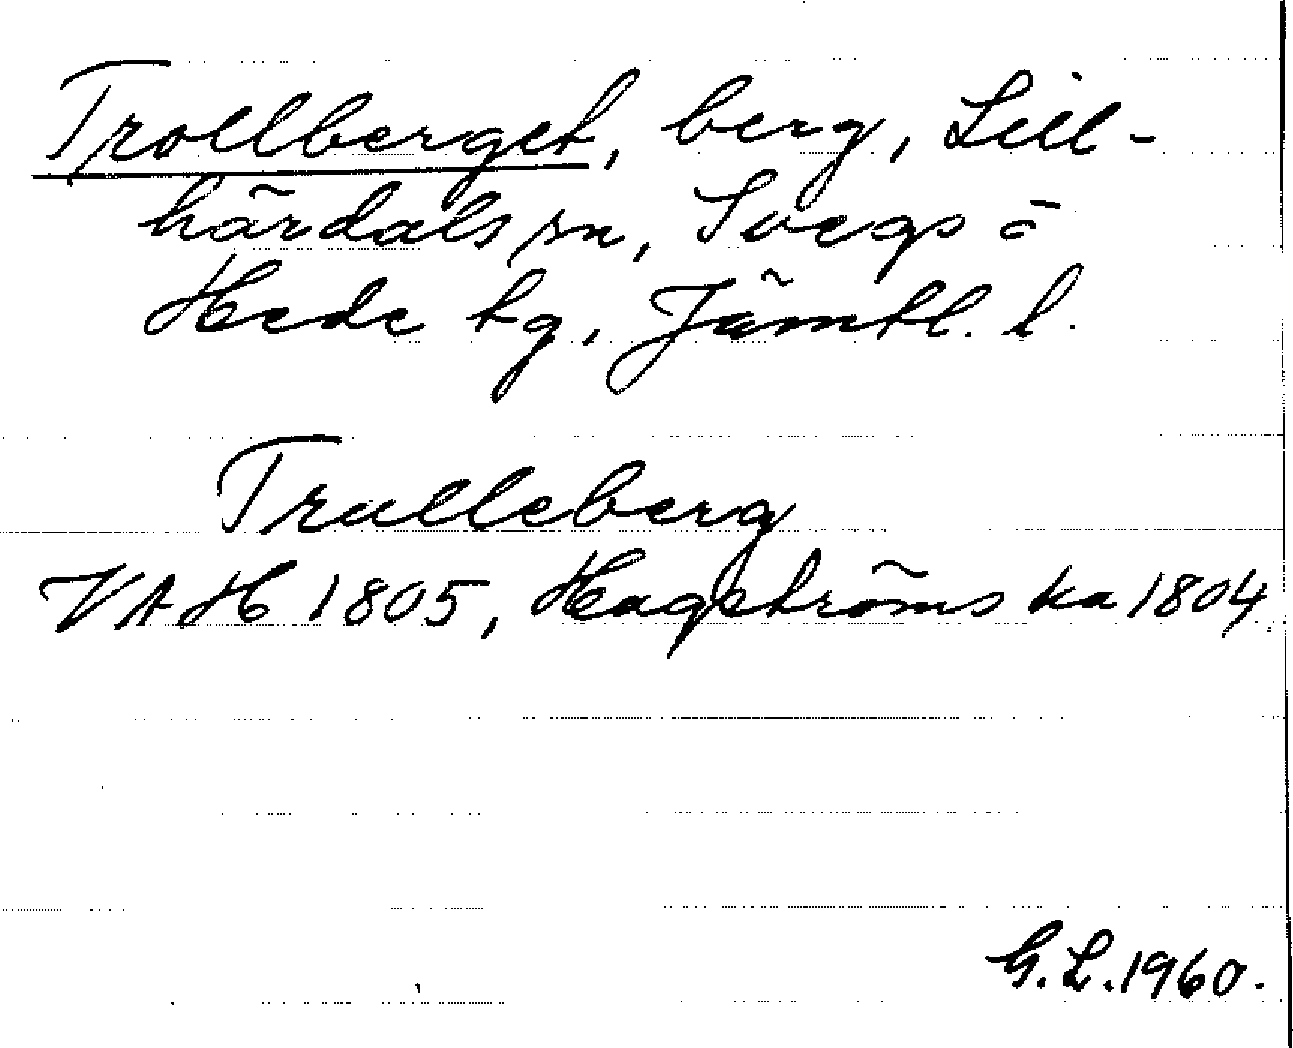 Trollberget, berg, Lill-
härdals sn, Svegs o
Hede tg, Jämtl. l.
Trulleberg
VAH 1805, Hagströms ka 1804.
G. L. 1960.